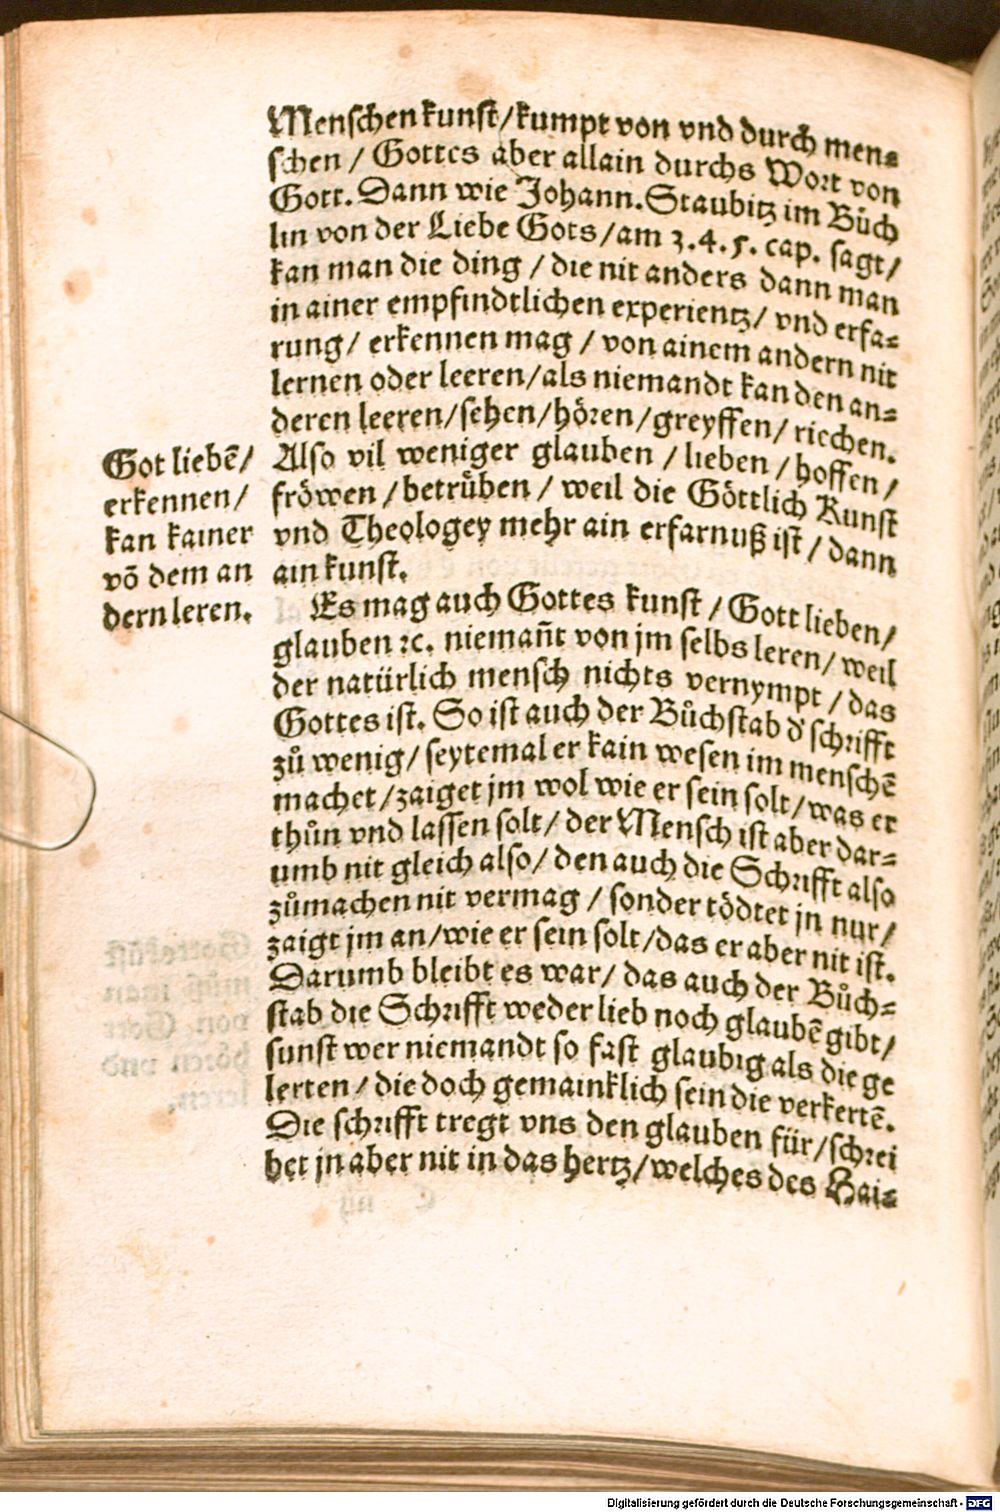 Menschen kunst/kumpt von vnd durch men⸗
schen / Gottes aber allain durchs Wort von
Gott. Dann wie Johann. Staubitz im Bůch
lin von der Liebe Gots/am 3.4.5. cap. sagt/
kan man die ding / die nit anders dann man
in ainer empfindtlichen experientz/ vnd erfa⸗
rung/ erkennen mag / von ainem andern nit
lernen oder leeren/als niemandt kan den an⸗
deren leeren/sehen/hören/greyffen/ riechen.
Also vil weniger glauben / lieben / hoffen /
fröwen / betrüben / weil die Göttlich Kunst
vnd Theologey mehr ain erfarnuß ist / dann
ain kunst.
Got liebē/
erkennen/
kan kainer
võ dem an
dern leren.
Es mag auch Gottes kunst / Gott lieben/
glauben ꝛc. niemañt von jm selbs leren/ weil
der natürlich mensch nichts vernympt / das
Gottes ist. So ist auch der Bůchstab d' schrifft
zů wenig/ seytemal er kain wesen im menschē
machet/zaiget jm wol wie er sein solt/was er
thůn vnd lassen solt/ der Mensch ist aber dar⸗
umb nit gleich also/ den auch die Schrifft also
zůmachen nit vermag / sonder tödtet jn nur/
zaigt jm an/wie er sein solt/das er aber nit ist.
Darumb bleibt es war/ das auch der Bůch⸗
stab die Schrifft weder lieb noch glaubē gibt/
sunst wer niemandt so fast glaubig als die ge
lerten / die doch gemainklich sein die verkertē.
Die schrifft tregt vns den glauben für/schrei
bet jn aber nit in das hertz/welches des Hai⸗
Digitalisierung gefördert durch die Deutsche Forschungsgemeinschaft - DFG